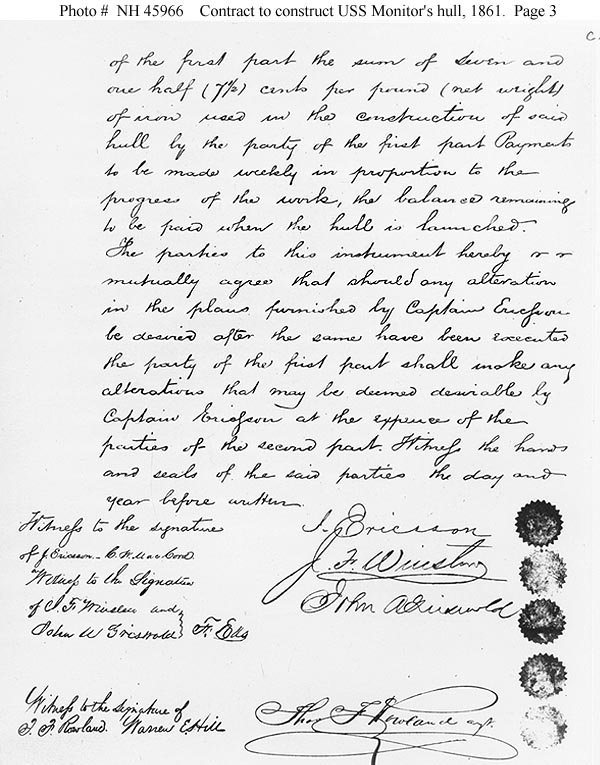 Photo # NH 45966 Contract to construct USS Monitor's hull, 1861. Page 3
C.
of the first part the sum of seven and
one half (7½) cents per pound (net weight)
of iron used in the construction of said
hull by the party of the first part Payments
to be made weekly in proportion to the
progress of the work, the balance remaining
to be paid when the hull is launched.
The parties to this instrument hereby
mutually agree that should any alteration
in the plans furnished by Captain Ericsson
be desired after the same have been executed
the party of the first part shall make any
alterations that may be deemed desirable by
Captain Ericsson at the expence of the
parties of the second part. Witness the hands
and seals of the said parties the day and
year before written.
Witness to the signature
of J. Ericsson - C. W. MacCord
Witness to the Signature
of J. F. Winslow and
John A Griswold F. Ells
J. Ericsson
J. F. Winslow
John A Griswold
Witness to the signature of
T. F. Rowland. Warren E. Hill
Thos F Rowland agt.